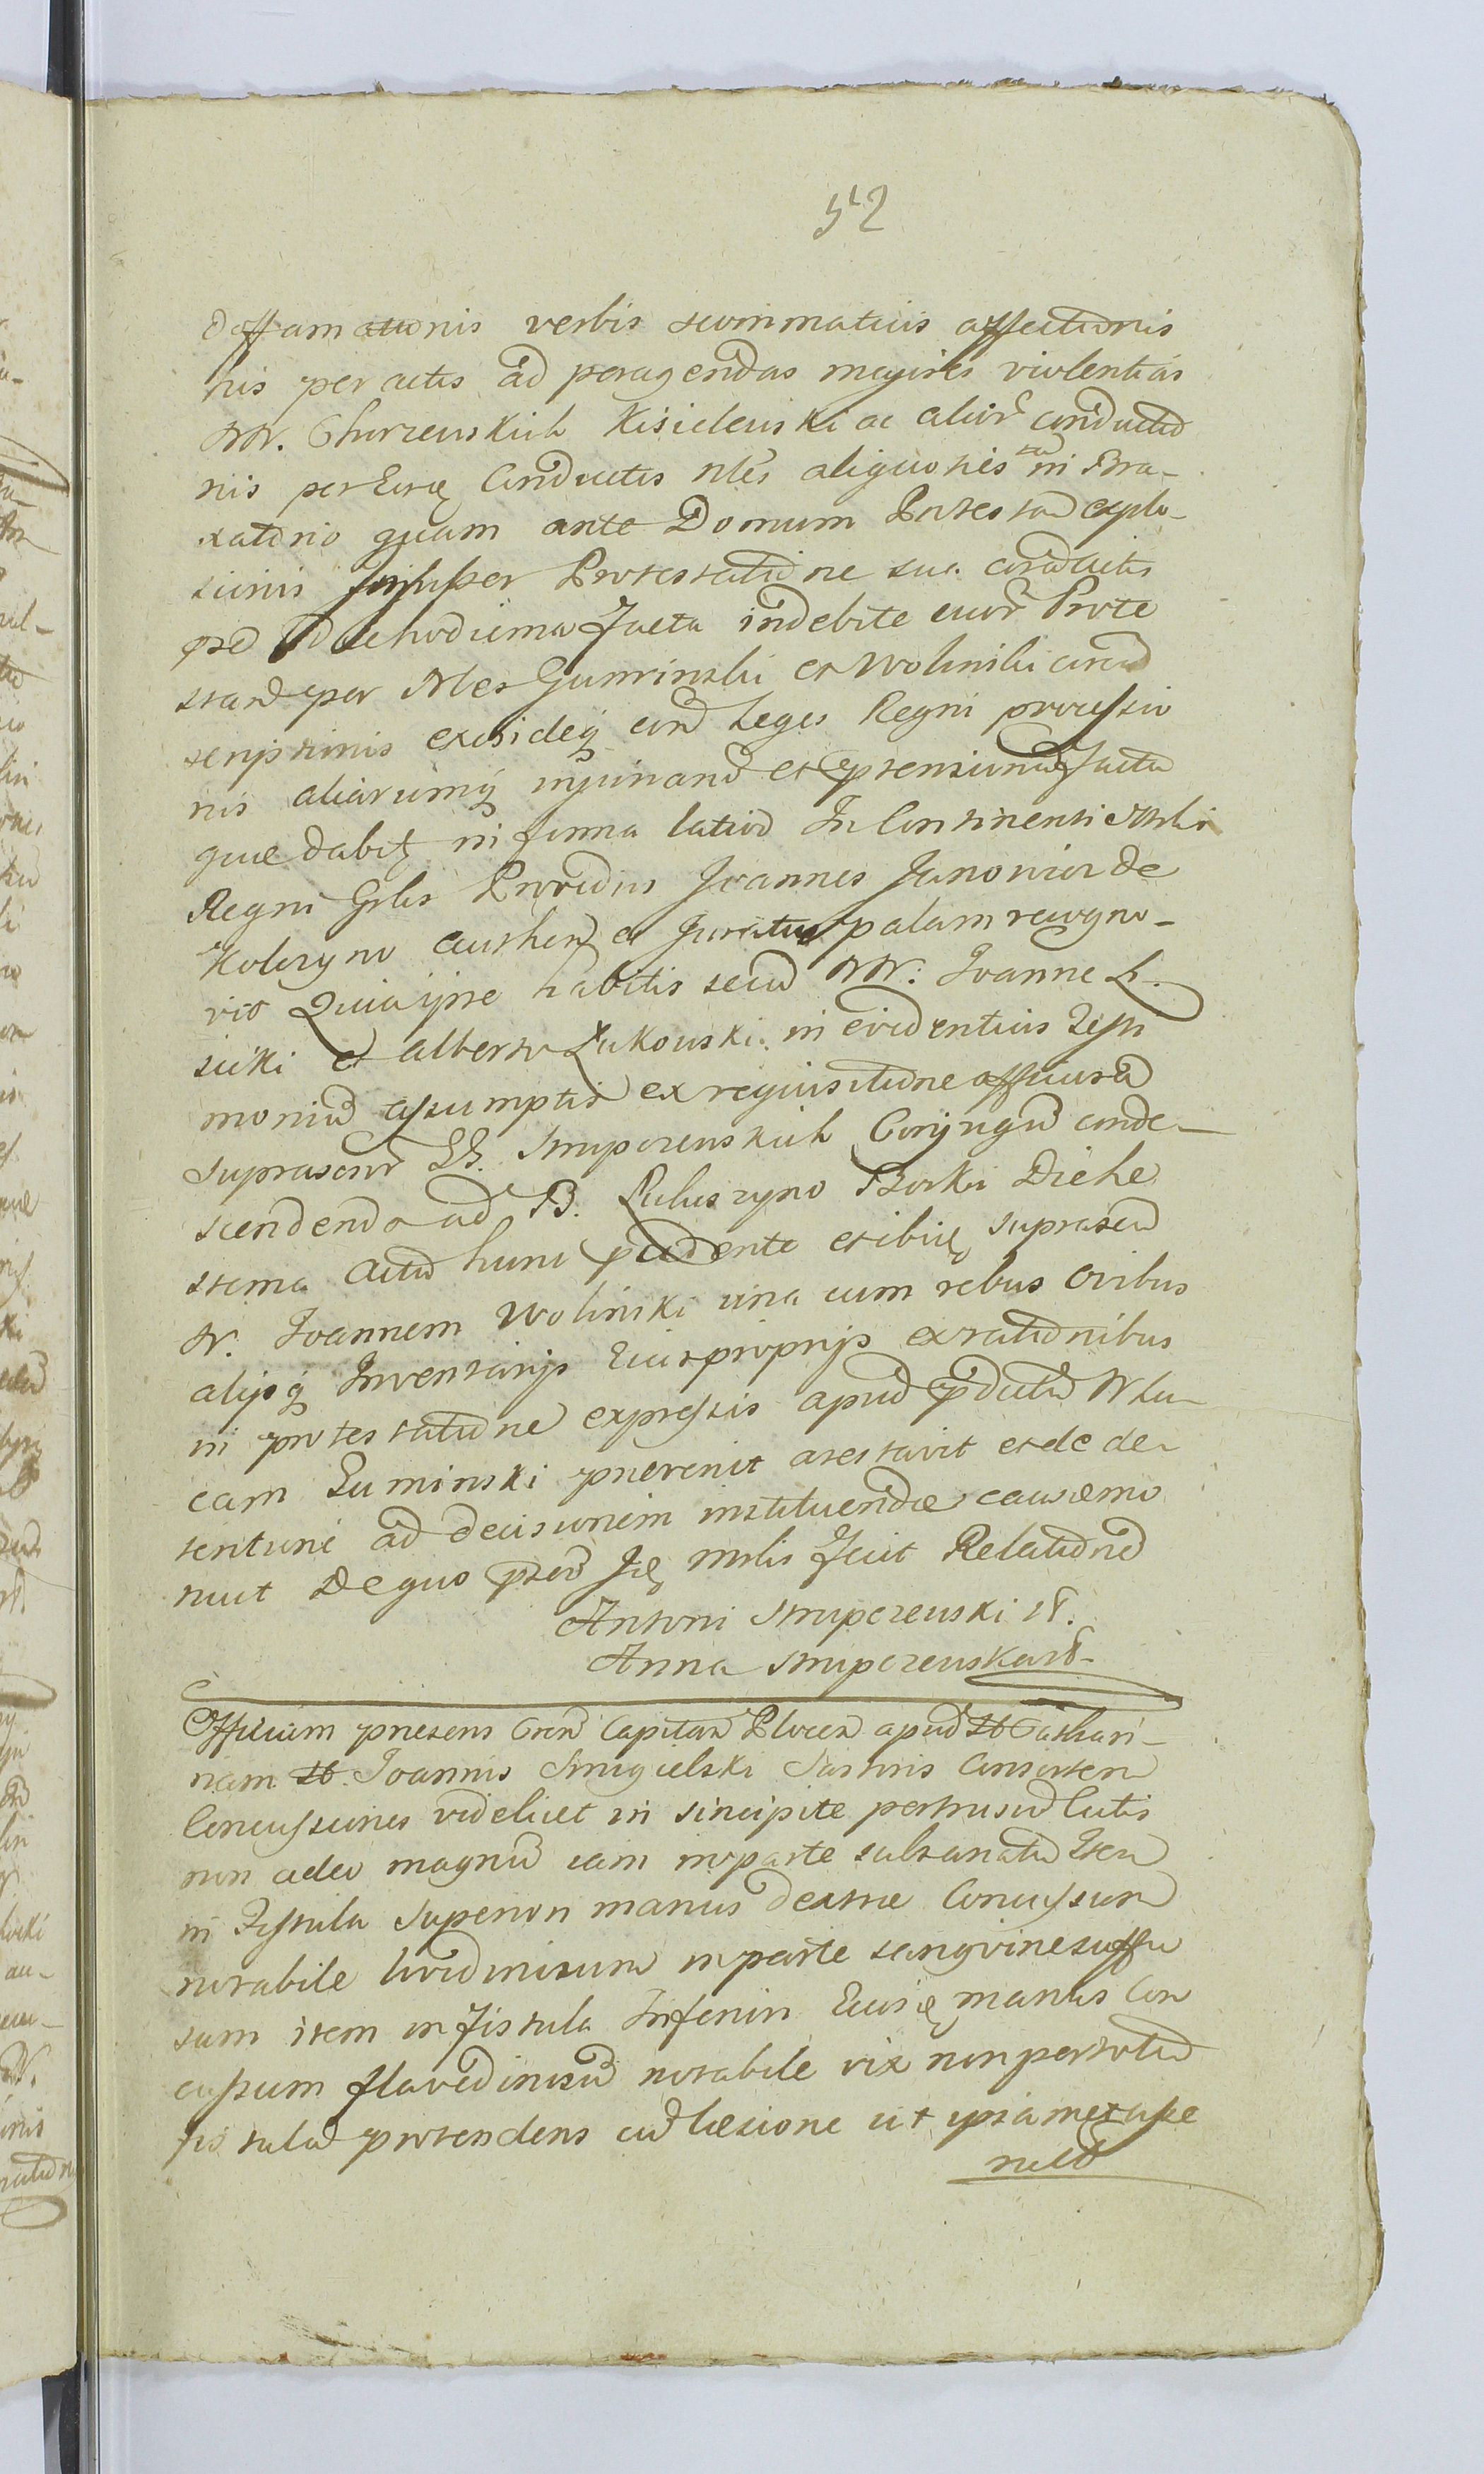 52
deffamationis verbis scommaticis affectionis
nis peractis ad peragendas majores violentias
NN. Churzewskich Kisielewski ac alior conductio
nis per Eosq conductis Nles aliquoties tam in Bra-
xatorio quam ante Domum Protestan explo-
sionis Insuper Protestatione sua conductis
pro Die hodierna facta indebite eior Prote
stan per Nles Guminski et Wolinski circum
scriptionis exindeq con Leges Regni processio
nis aliarumq injurian et prætensionum facta
quæ dabit in forma latiori In Continenti Mtrlis
Regni Gnlis Providus Joannes Janowicz de
authen et Juratus palam recogno-
vit Quia ipse habitis secum NN: Joanne L.
sicki et Alberto Łukowski in evidentius Testi
monium assumptis ex requisitione officiosa
suprascri Strupczewskich Conjugum conde-
scendendo ad B. Borki Die he
sterna actum hunc præcedente et ibiq suprascri
N. Joannem Wolinski una cum rebus ovibus
alijsq Inventarijs Eius proprijs ex rationibus
in protestatione expressis apud prædictum N Lu
cam Luminski prævenit arestavit et de de
tentione ad decisionem instituendæ causæ mo
nuit De quo præsens Mtrlis fecit Relationem
Antoni Strupczewski
Anna Strupczewska
Officium præsens Cren Capitan Plocen apud Cathari-
nam Joannis Smigielski Sartoris Consorten
Concussiones videlicet in sincipite pertrusum Cutis
non adeo magnum iam in parte subsanatum Item
in Fistula Superiori manus dextræ Concussum
notabile lividinosum in parte sangvine suffu
sum item in fistula Inferiori Eiusq manus Con
cussum flavedinosum notabile vix non per totam
fistulam protendens cum læsione ut ipsamet asse